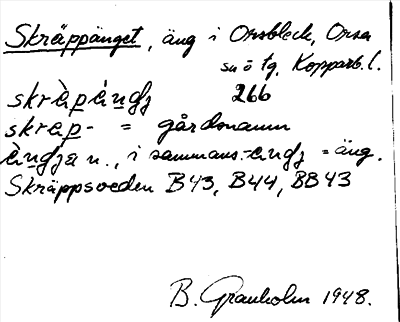 Skräppänget, äng i Orsbleck, Orsa
sn ö tg, Kopparb. l.
skràpàndj 266
skrap- = gårdsnamn
àndja n., i sammans. -andj = äng.
Skräppsveden B43, B44, BB43
B. Granholm 1948.